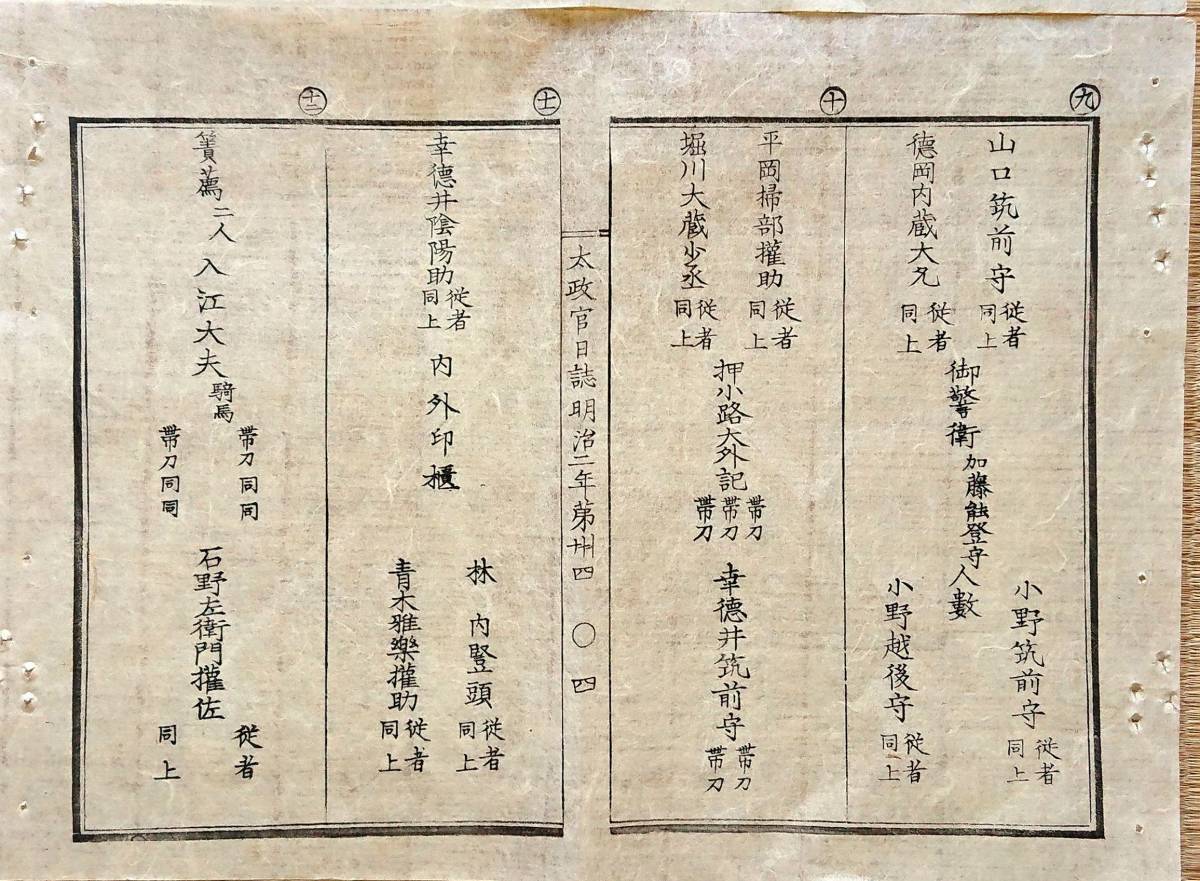 九
山口筑前守
従者
同上
徳岡内蔵大允
従者
同上
御警衛加藤能登守人數
小野筑前守
従者
同上
小野越後守
従者
同上
十
平岡掃部權助
従者
同上
堀川大蔵少丞
従者
同上
押小路大外記
帶刀
帶刀
帶刀
幸徳井筑前守
帶刀
帶刀
太政官日誌明治二年第卅四 〇 四
十一
幸徳井陰陽助
従者
同上
内外印櫃
林内豎頭
従者
同上
青木雅樂權助
従者
同上
十二
簀薦二人
入江大夫騎馬
帶刀同同
帶刀同同
石野左衛門權佐
従者
同上